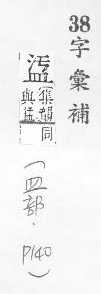 38字彙補
集韻
與
同
(皿部. P140)